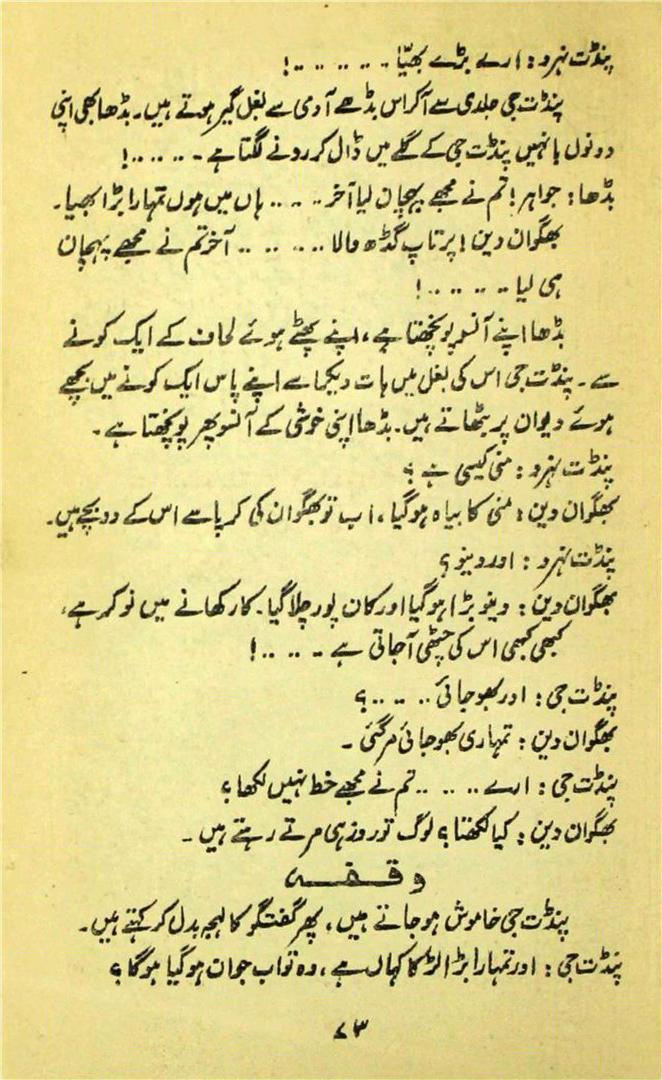 پنڈت نہرو : ارے بڑے بھیّا ۔ ۔۔ ۔۔ ۔۔ !
پنڈت جی جلدی سے آ کر اس بڈھے آدمی سے بغل گیر ہوتے ہیں۔ بڈھا بھی اپنی
دونوں بانہیں پنڈت جی کے گلے میں ڈال کر رونے لگتا ہے ۔ ۔۔ ۔۔ !
بڈھا : جواہر! تم نے مجھے پہچان لیا آخر ۔۔ ۔۔ ہاں میں ہوں تمہارا بڑا بھیا۔
بھگوان دین! پرتاپ گڈھ والا ۔۔ ۔۔ ۔۔ آخر تم نے مجھے پہچان
ہی لیا ۔۔ ۔۔ ۔۔ !
بڈھا اپنے آنسو پونچھتا ہے، اپنے پھٹے ہوئے لحاف کے ایک کونے
سے ۔ پنڈت جی اس کی بغل میں ہات دیکر اسے اپنے پاس ایک کونے میں بچھے
ہوئے دیوان پر بٹھاتے ہیں۔ بڈھا اپنی خوشی کے آنسو پھر پونچھتا ہے ۔
پنڈت نہرو : منی کیسی ہے ؟
بھگوان دین : منی کا بیاہ ہو گیا ، اب تو بھگوان کی کرپا سے اس کے دو بچے ہیں۔
پنڈت نہرو : اور وینو ؟
بھگوان دین : وینو بڑا ہو گیا اور کان پور چلا گیا۔ کارکھانے میں نوکر ہے ،
کبھی کبھی اس کی چٹھی آ جاتی ہے ۔ ۔۔ ۔۔ !
پنڈت جی : اور بھوجائی ۔۔ ۔۔ ؟
بھگوان دین : تمہاری بھوجائی مر گئی ۔
پنڈت جی : ارے ۔۔ ۔۔ ۔۔ تم نے مجھے خط نہیں لکھا ؟
بھگوان دین : کیا لکھتا ؟ لوگ تو روز ہی مرتے رہتے ہیں ۔
وقفہ
پنڈت جی خاموش ہو جاتے ہیں ، پھر گفتگو کا لہجہ بدل کر کہتے ہیں۔
پنڈت جی : اور تمہارا بڑا لڑکا کہاں ہے ، وہ تو اب جوان ہو گیا ہو گا ؟
۷۳